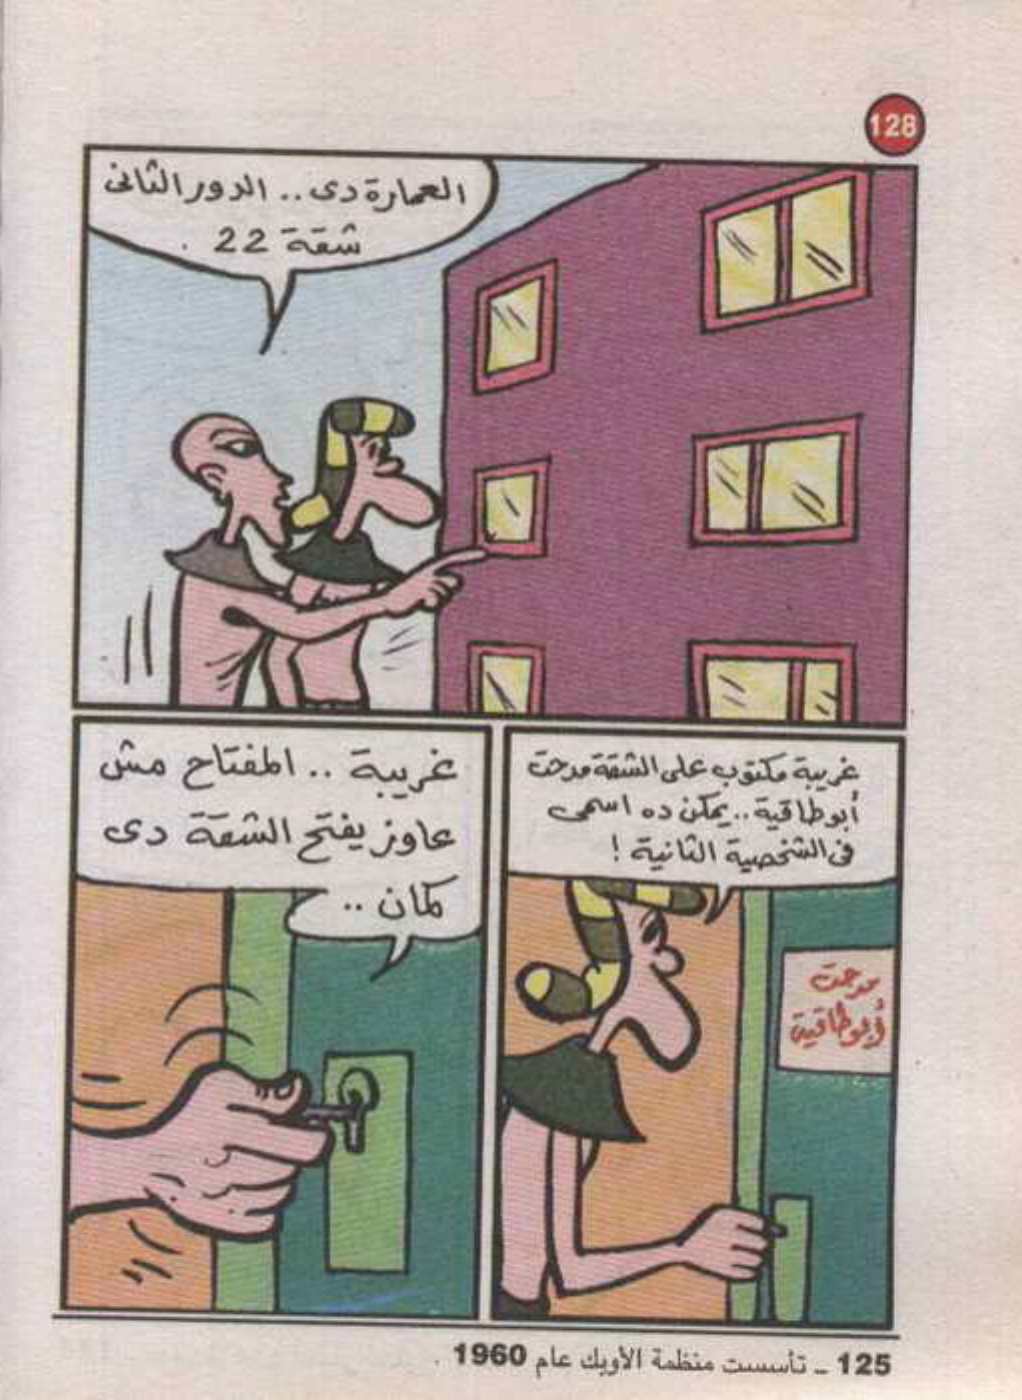 128
العمارة دى .. الدور الثانى
شقة 22 .
غريبة مكتوب على الشقة مدحت
أبو طاقية .. يمكن ده اسمى
فى الشخصية الثانية !
مدحت
أبو طاقية
غريبة .. المفتاح مش
عاوز يفتح الشقة دى
كمان ..
125 ــ تأسست منظمة الأوبك عام 1960 .